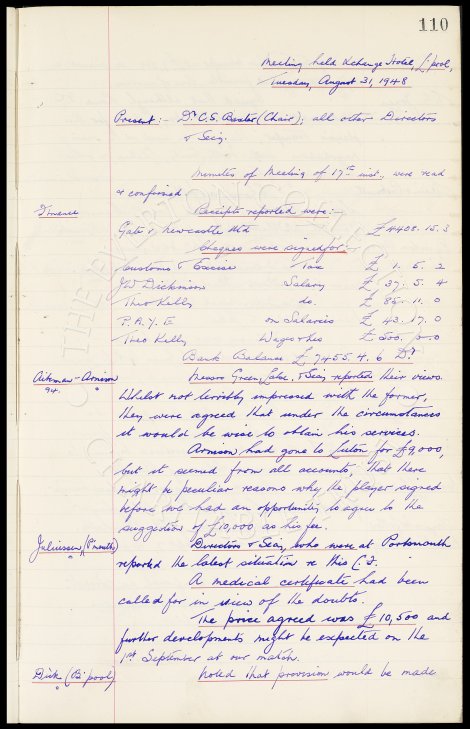 110
Meeting held Xchange Hotel, L'pool,
Tuesday, August 31, 1948
Present:- Dr C.S. Baxter (Chair); all other Directors
& Secy.
Minutes of Meeting of 17th inst., were read
& confirmed
Finance
Receipts reported were:-
Gate v. Newcastle Utd £4408. 15. 3
Cheques were signed for:-
Customs & Excise Tax £ 1. 5. 2
JW Dickinson Salary £ 37. 5. 4
Theo Kelly do. £ 85. 11. 0
P.A.Y.E on Salaries £ 43. 17. 0
Theo Kelly Wages & Exes £ 500. 0. 0
Bank Balance £7455. 4. 6 Dr
Aitkman - Arnison
94.
Messrs Green, Sabe, & Secy reported their views.
Whilst not terribly impressed with the former,
they were agreed that under the circumstances
it would be wise to obtain his services.
Arnison had gone to Luton for £9,000,
but it seemed from all accounts, that there
might be peculiar reasons why the player signed
before we had an opportunity to agree to the
suggestion of £10,000 as his fee.
Juliussen, (P'mouth)
Directors & Secy, who were at Portsmouth
reported the latest situation re this C.F.
A medical certificate had been
called for in view of the doubts.
The price agreed was £10,500 and
further developments might be expected on the
1st September at our match.
Dick (B'pool)
Noted that provision would be made